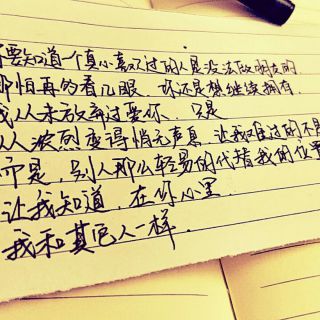 要知道一个真心喜欢过的人是没法做朋友的
那怕再的看几眼、你还是想继续拥有.
我从未放弃过爱你、只是
从浓烈变得悄无声息、让我难过的不是
而是,别人那么轻易的代替我的位置
让我知道,在你心里
我和其它人一样.